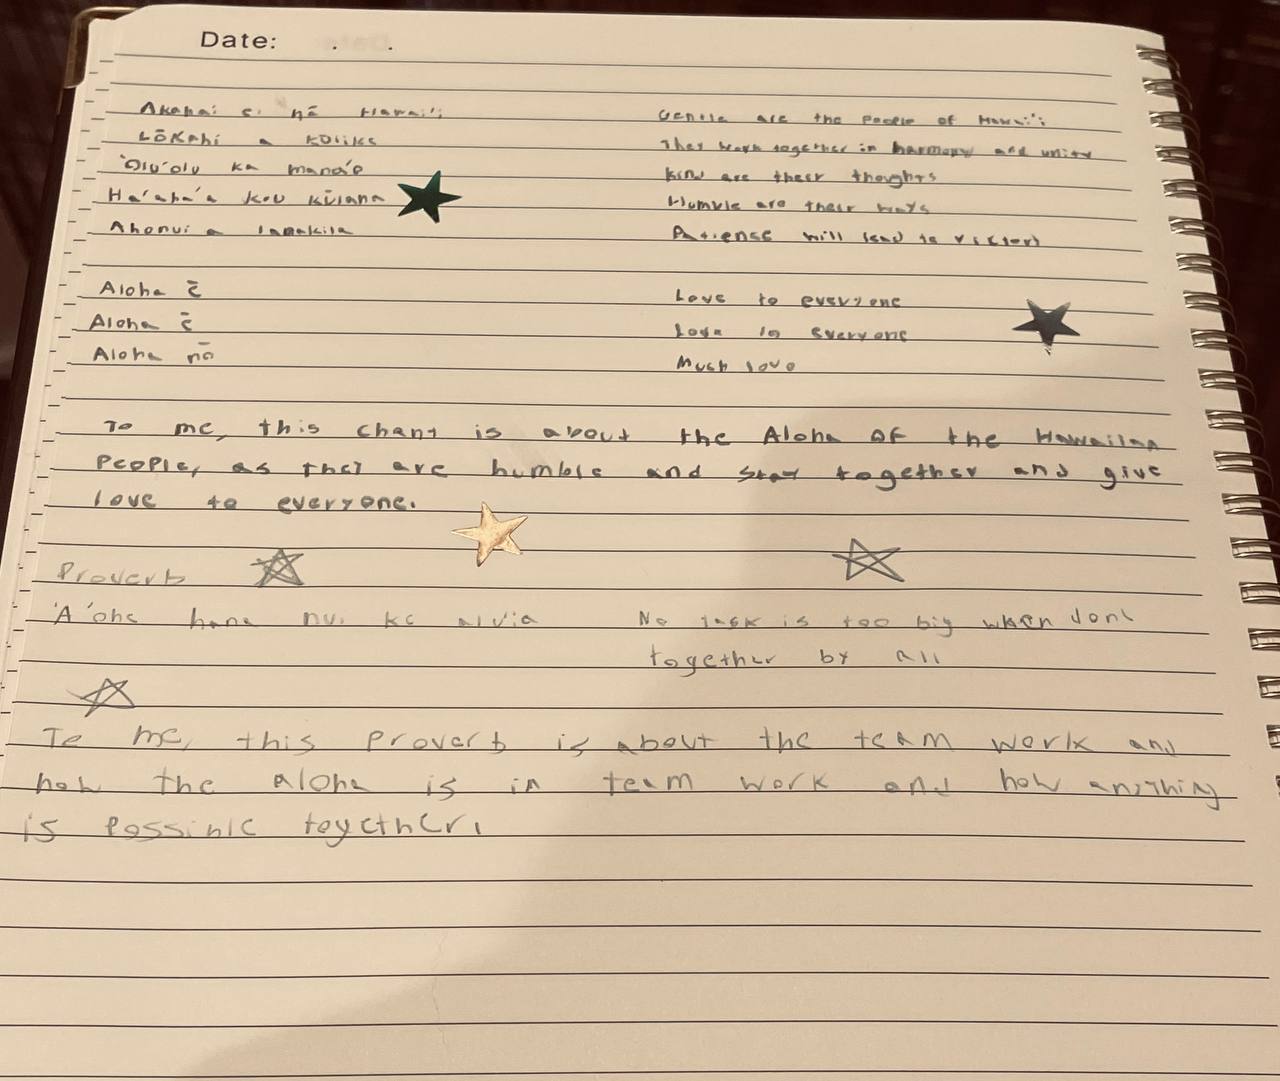 Date: . .
Akahai e nā Hawai'i Gentle are the people of Hawai'i
Lōkahi a kūlike They work together in harmony and unity
'Olu'olu ka mana'o Kind are their thoughts
Ha'aha'a kou kūlana Humble are their ways
Ahonui a lanakila Patiense will lead to victory
Aloha ē Love to everyone
Aloha ē Love to everyone
Aloha nō Much love
To me, this chant is about the Aloha of the Hawaiian
People, as they are humble and stay together and give
love to everyone.
Proverb
'A'ohe hana nui ke alu'ia No task is too big when done
together by all
To me, this proverb is about the team work and
how the aloha is in team work and how anything
is possible together.